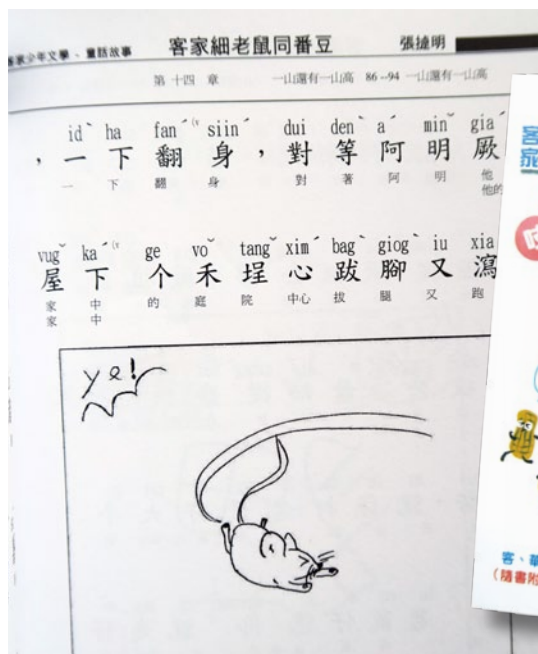 客家少年文學、童話故事 客家細老鼠同番豆 張捷明
第十四章 一山還有一山高 86--94 一山還有一山高
idˋ ha fanˊ⁽ᵛ siinˊ dui denˋ aˊ minˇ giaˊ
，一下翻身，對等阿明厥
一 下 翻 身 對 著 阿 明 他
他的
vugˇ kaˊ⁽ᵛ ge voˇ tangˇ ximˊ bagˋ giogˋ iu xia
屋下个禾埕心跋腳又瀉
家 中 的 庭 院 中心 拔 腿 又 跑
家 中
ye!
客
客、華
(隨書附